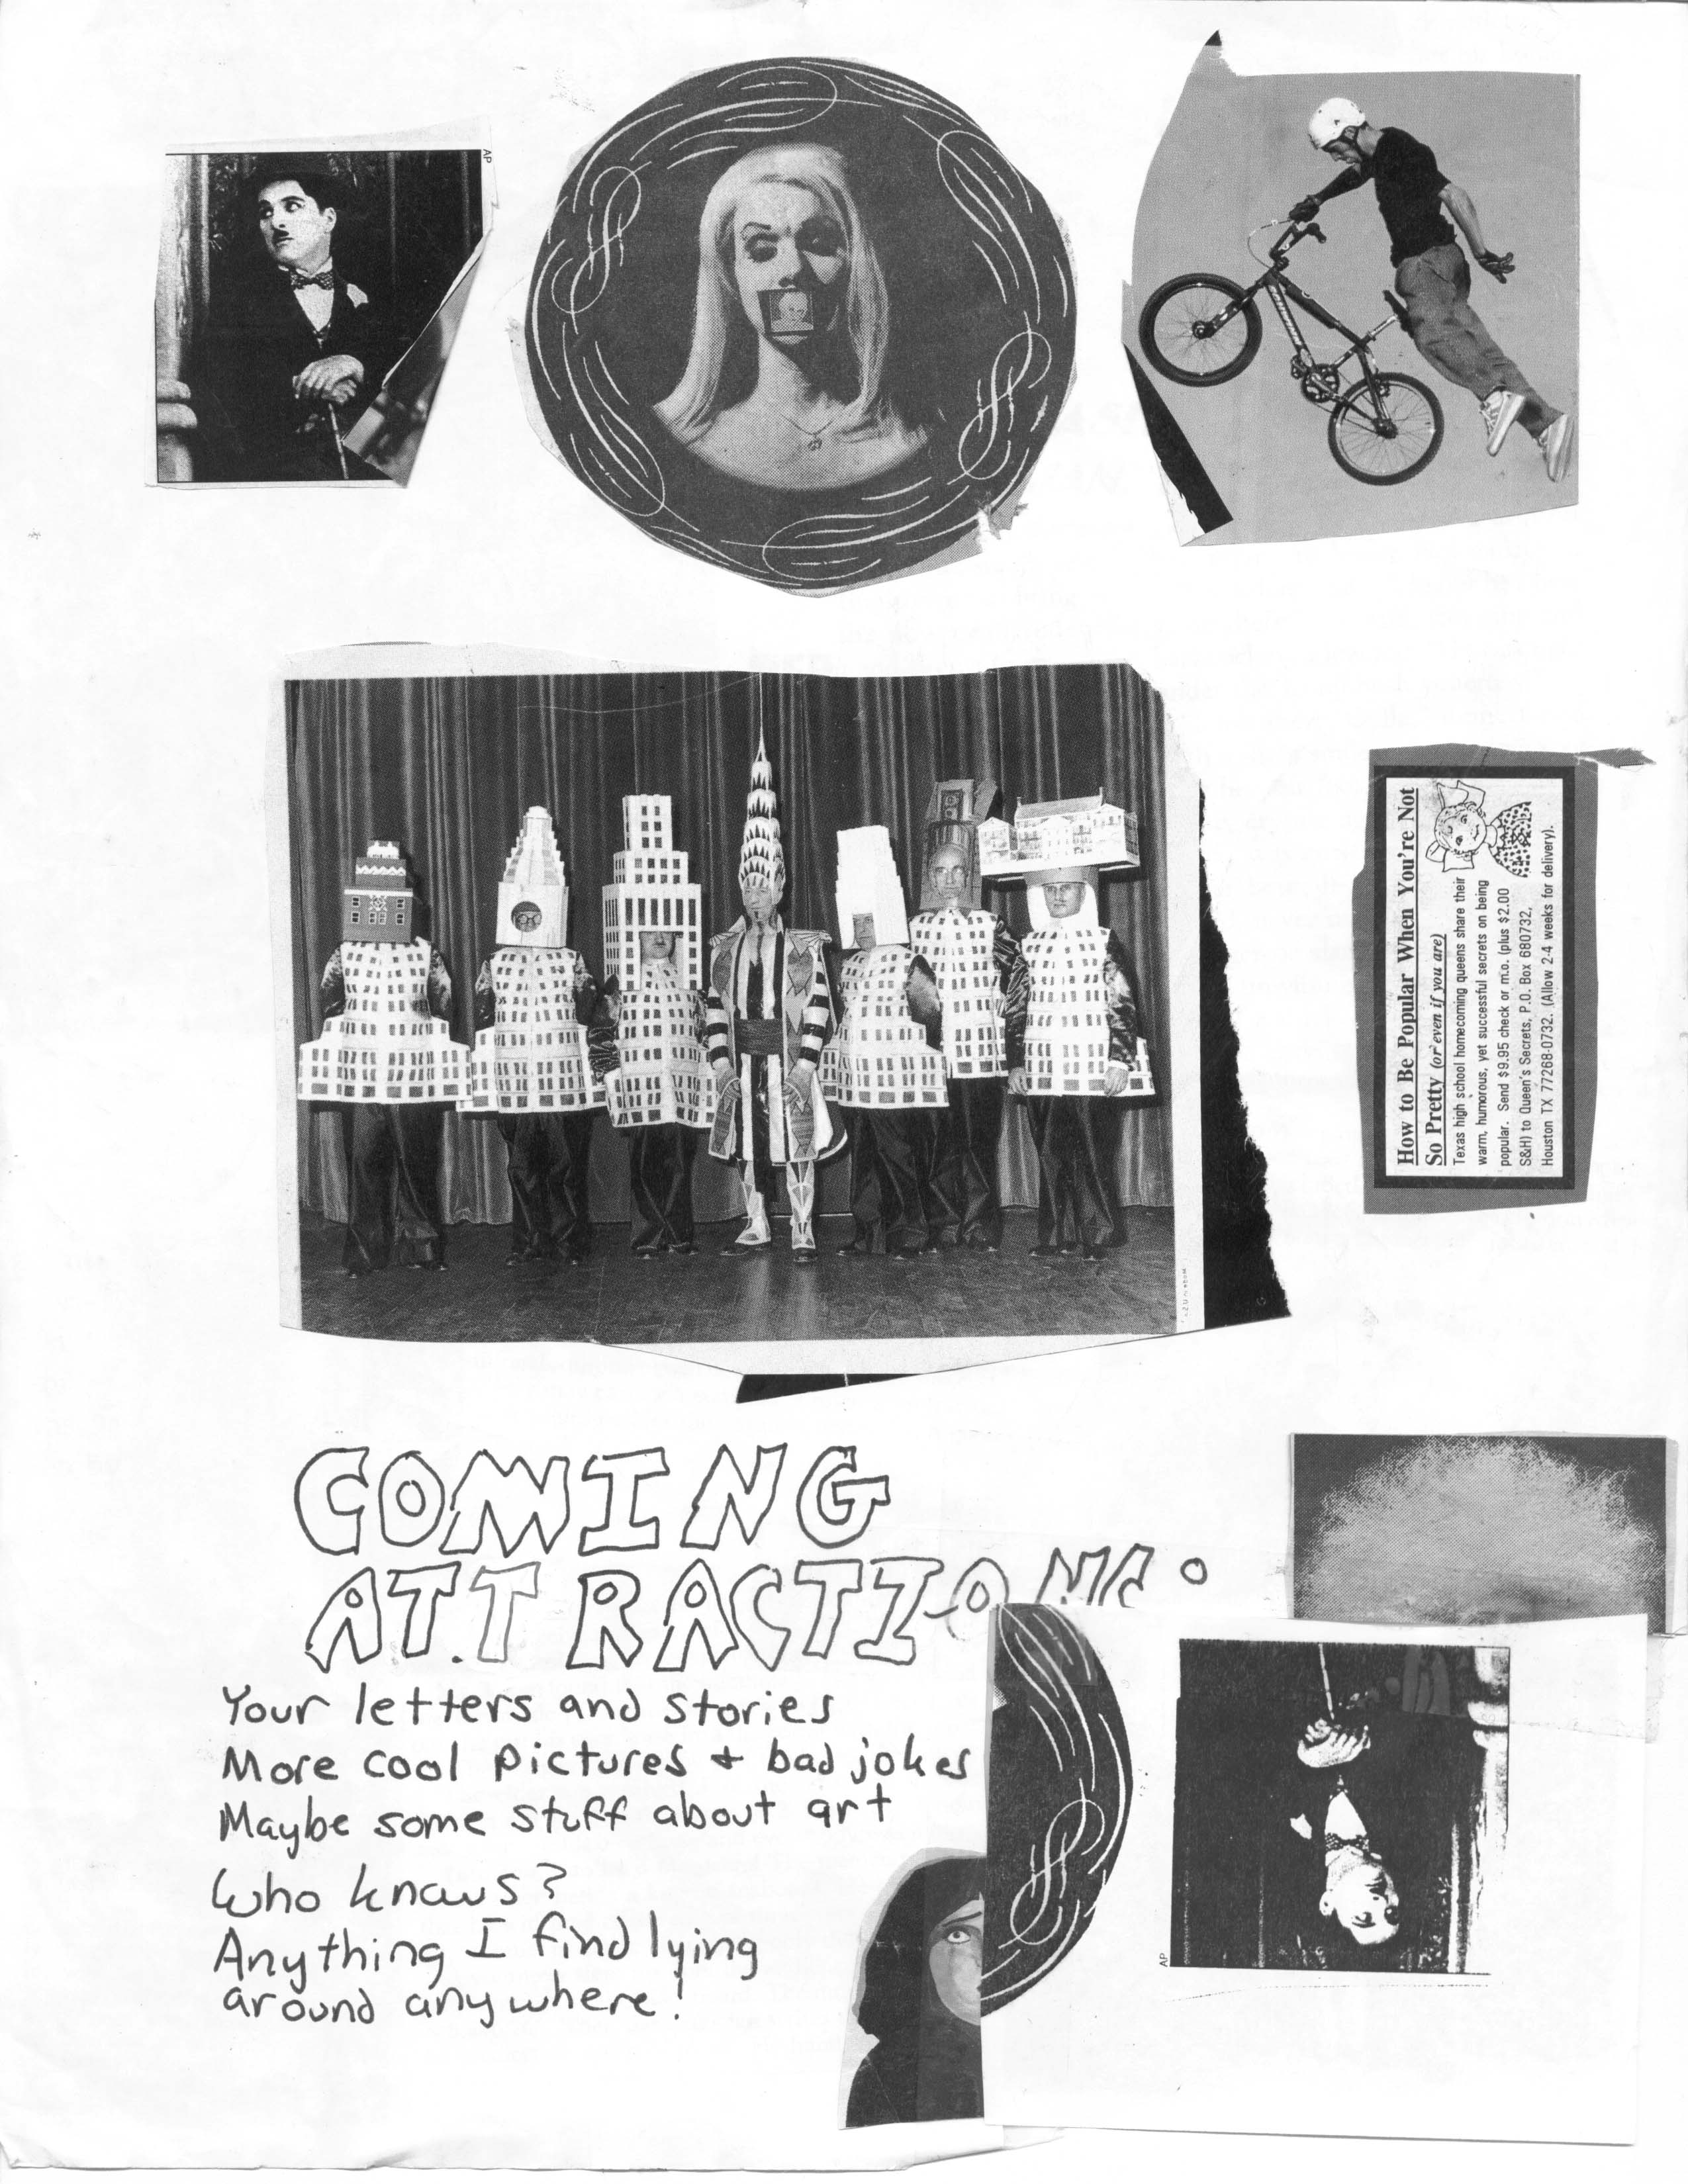 AP
How to Be Popular When You're Not
So Pretty (or even if you are)
Texas high school homecoming queens share their
warm, humorous, yet successful secrets on being
popular. Send $9.95 check or m.o. (plus $2.00
S&H) to Queen's Secrets, P.O. Box 680732,
Houston TX 77268-0732. (Allow 2-4 weeks for delivery).
COMING
ATTRACTIONS:
Your letters and stories
More cool pictures + bad jokes
Maybe some stuff about art
Who knows?
Anything I find lying
around anywhere!
AP